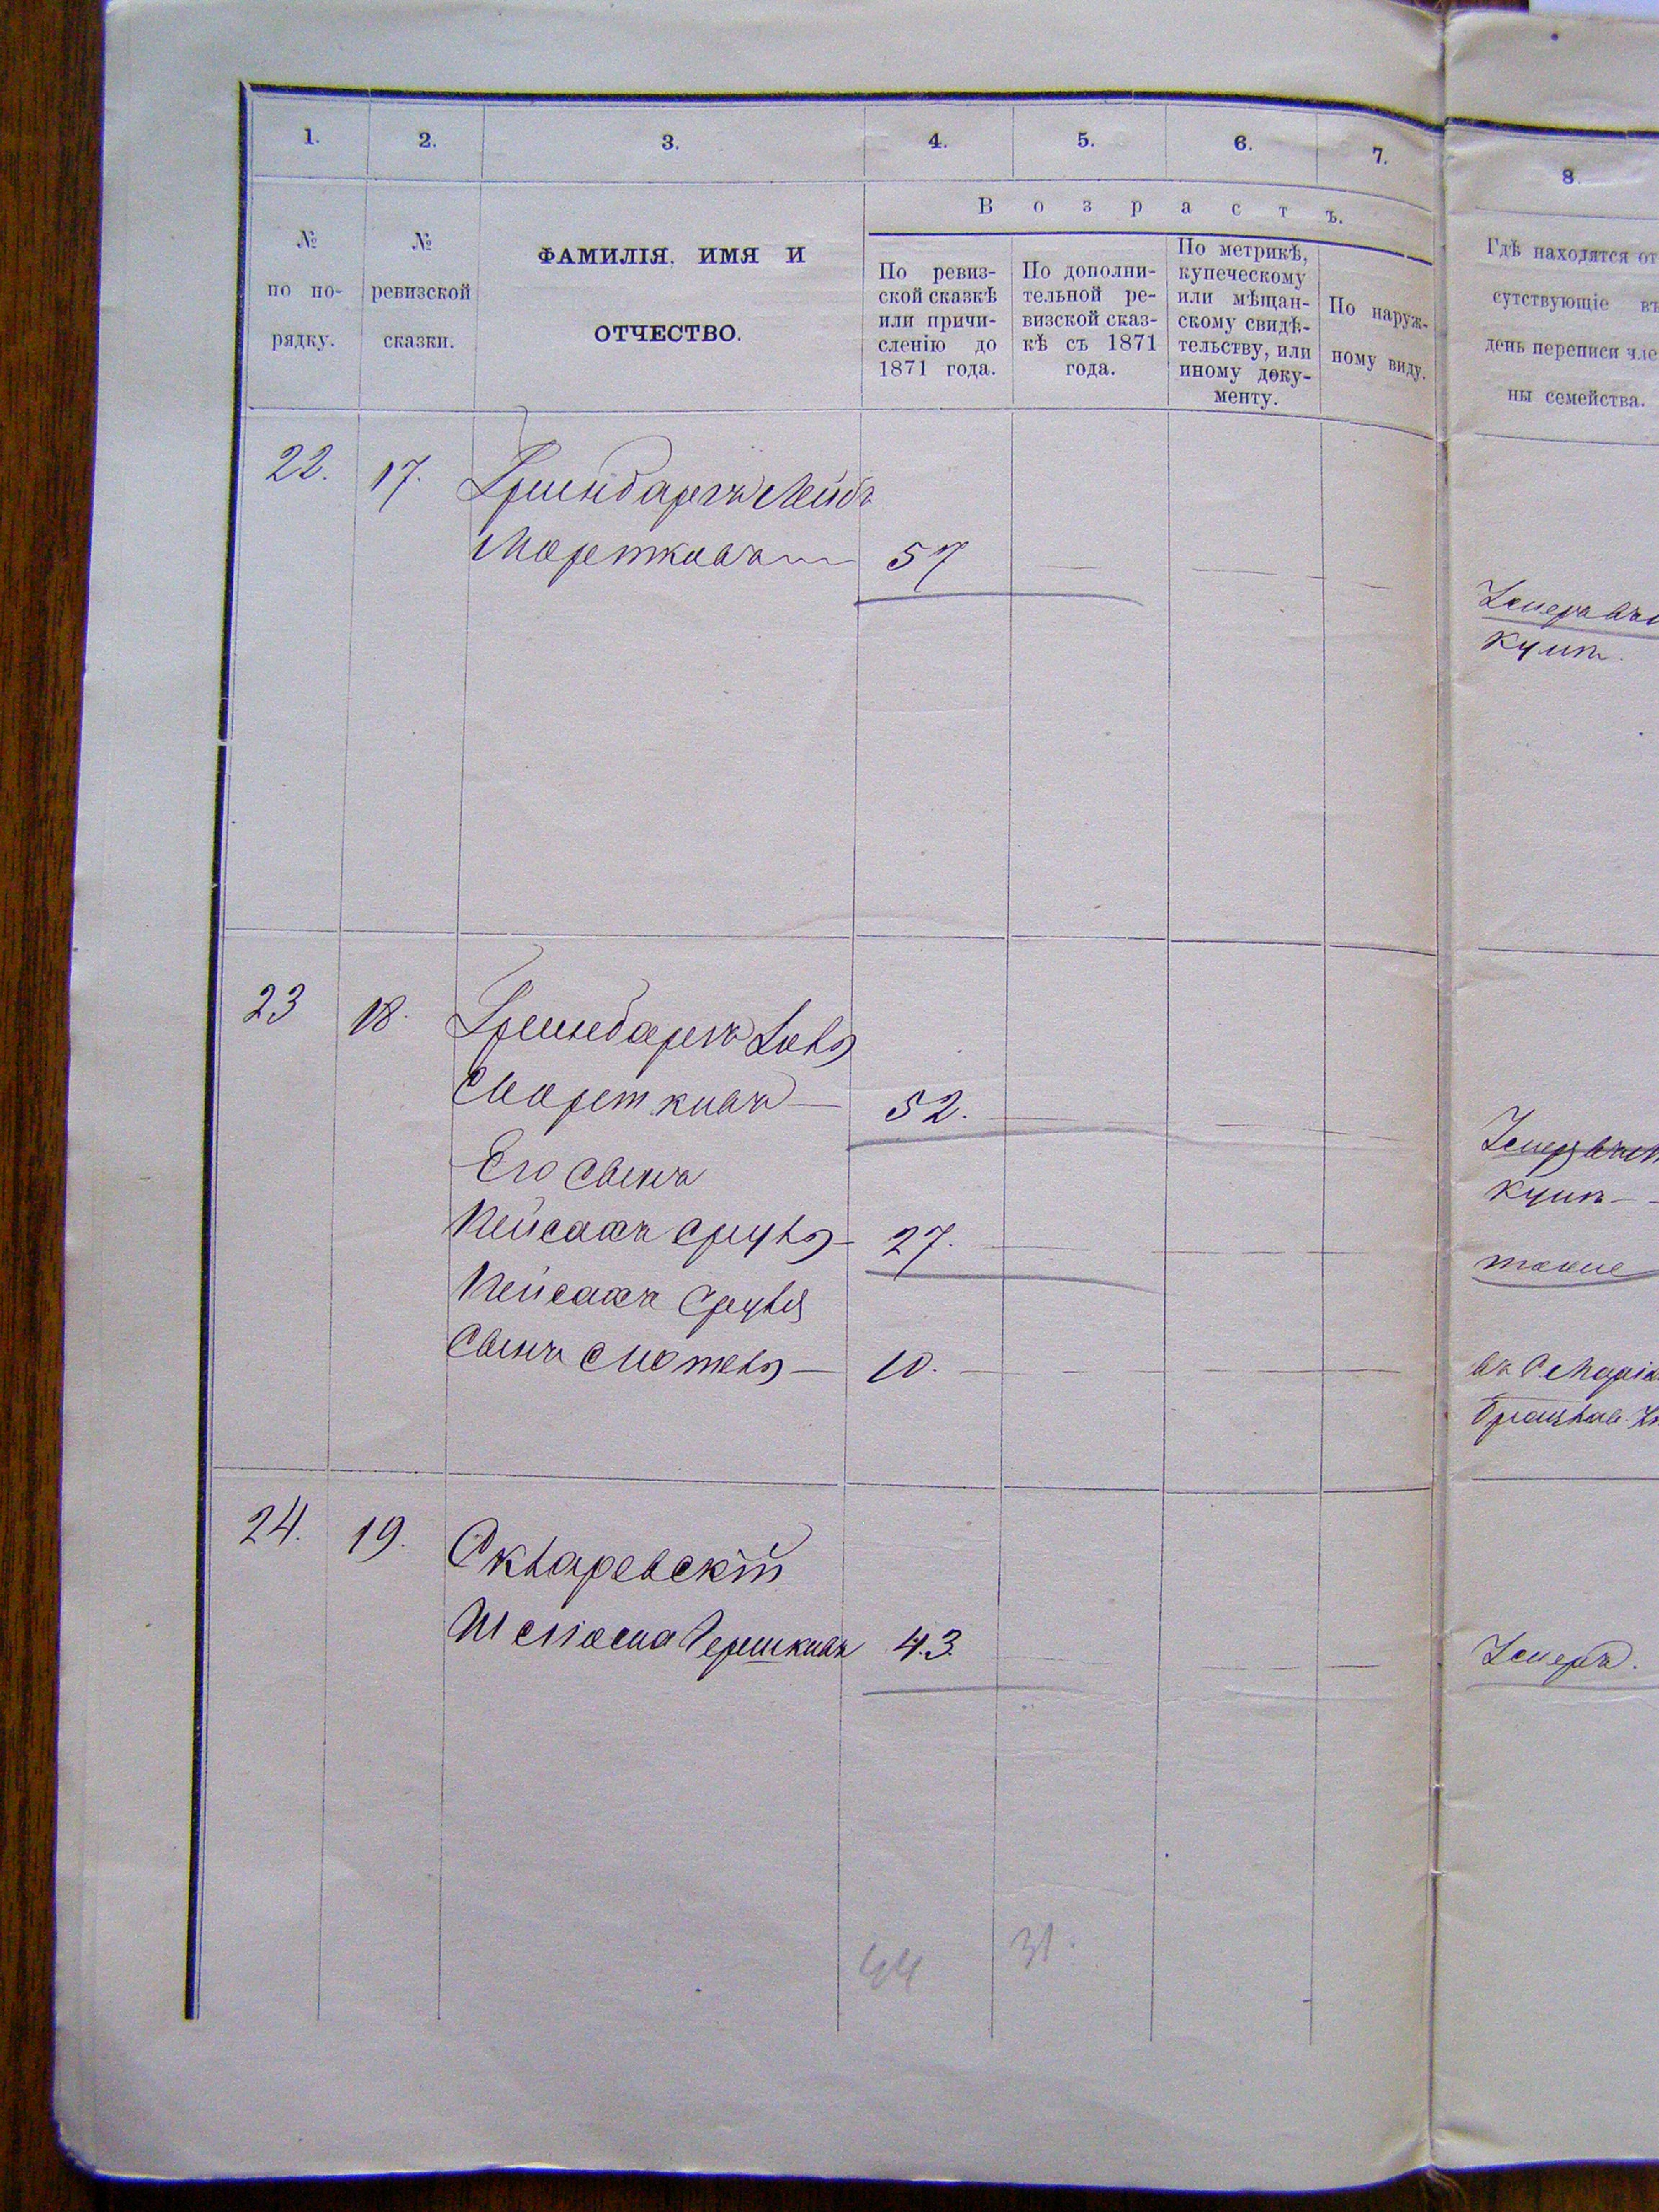 1. 2. 3. 4. 5. 6. 7. 8
№ по порядку.
№ ревизской сказки.
ФАМИЛІЯ, ИМЯ И
ОТЧЕСТВО.
Возрастъ.
По ревиз-
ской сказкѣ
или причи-
сленію до
1871 года.
По дополни-
тельной ре-
визской сказ-
кѣ съ 1871
года.
По метрикѣ,
купеческому
или мѣщан-
скому свидѣ-
тельству, или
иному доку-
менту.
По наруж-
ному виду.
Гдѣ находятся от
сутствующіе въ
день переписи чле
ны семейства.
22. 17. Гринбаргъ Лейбъ
Мортковъ 57 — — — —
Умеръ
23 18. Гринбаргъ
Мортковъ — 52. — — — —
Умеръ
Его сынъ
Пейсахъ Сруль — 27. — — — —
тоже
Пейсаха Сруля
Сынъ Мотель — 10. — — — —
въ С.
24. 19. Скляревскій
Шлиома Гершковъ 43. — — —
Умеръ.
44 31.